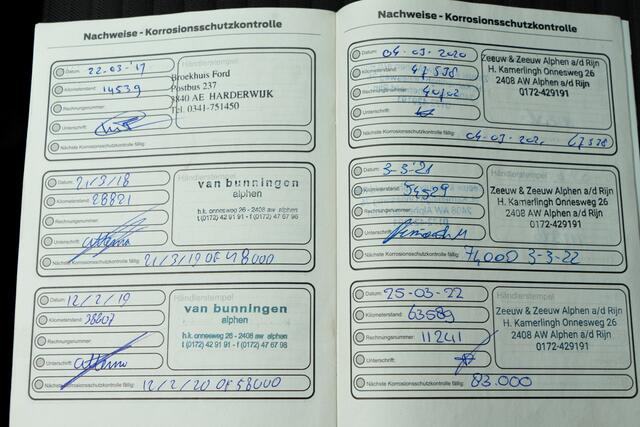 Nachweise - Korrosionsschutzkontrolle
Datum: 22-03-'17
Kilometerstand: 14539
Rechnungsnummer:
Unterschrift:
Nächste Korrosionsschutzkontrolle fällig:
Händlerstempel
Broekhuis Ford
Postbus 237
3840 AE HARDERWIJK
Tel. 0341-751450
Datum: 21/3/18
Kilometerstand: 28821
Rechnungsnummer:
Unterschrift:
Nächste Korrosionsschutzkontrolle fällig: 21/3/19 OF 48000
van bunningen
alphen
h.k. onnesweg 26 - 2408 aw alphen
t.(0172) 42 91 91 - f.(0172) 47 67 98
Datum: 12/2/19
Kilometerstand: 38807
Rechnungsnummer:
Unterschrift:
Nächste Korrosionsschutzkontrolle fällig: 12/2/20 OF 58000
Händlerstempel
van bunningen
alphen
h.k. onnesweg 26 - 2408 aw alphen
t.(0172) 42 91 91 - f.(0172) 47 67 98
Nachweise - Korrosionsschutzkontrolle
Datum: 04-03-2020
Kilometerstand: 47538
Rechnungsnummer: 40102
Unterschrift:
Nächste Korrosionsschutzkontrolle fällig: 04-03-202
Zeeuw & Zeeuw Alphen a/d Rijn
H. Kamerlingh Onnesweg 26
2408 AW Alphen a/d Rijn
0172-429191
Datum: 3-3-'21
Kilometerstand: 54529
Rechnungsnummer:
Unterschrift:
Nächste Korrosionsschutzkontrolle fällig: 74000 3-3-22
Zeeuw & Zeeuw Alphen a/d Rijn
H. Kamerlingh Onnesweg 26
2408 AW Alphen a/d Rijn
0172-429191
Datum: 25-03-22
Kilometerstand: 63589
Rechnungsnummer: 11241
Unterschrift:
Nächste Korrosionsschutzkontrolle fällig: 83.000
Händlerstempel
Zeeuw & Zeeuw Alphen a/d Rijn
H. Kamerlingh Onnesweg 26
2408 AW Alphen a/d Rijn
0172-429191